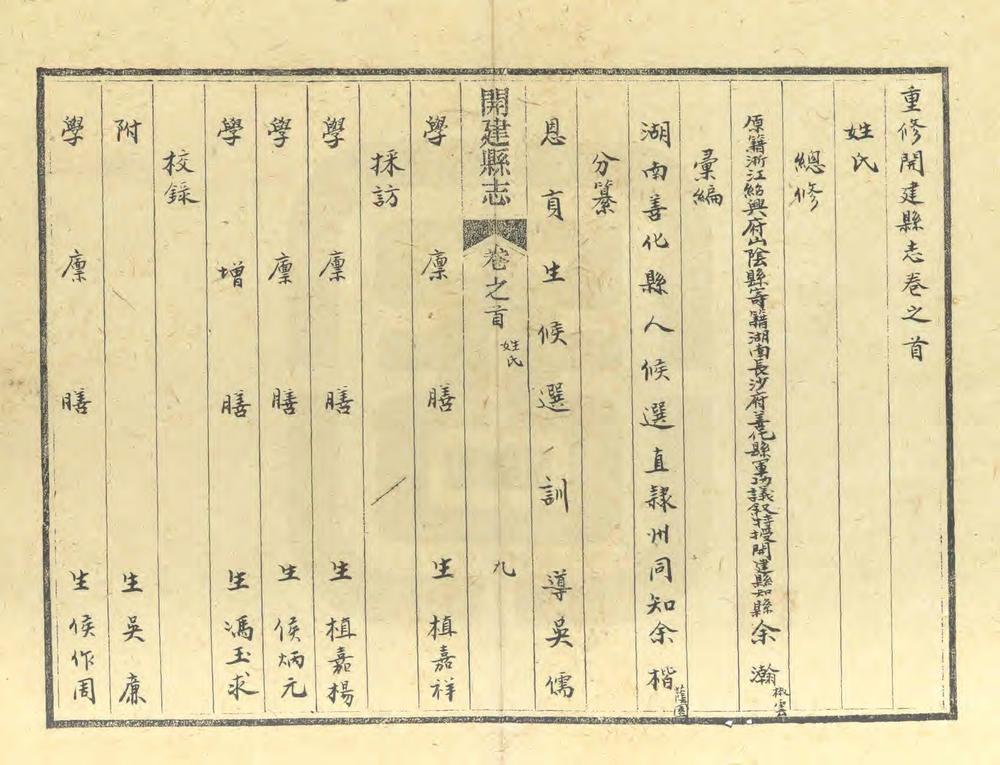 重修開建縣志卷之首
姓氏
總修
原籍浙江紹興府山陰縣寄籍湖南長沙府善化縣軍功議叙特授開建縣知縣余瀚椒雲
彙編
湖南善化縣人候選直隸州同知余楷蔭圃
分纂
恩貢生候選訓導吳儒
開建縣志 卷之首 姓氏 九
學廩膳生植嘉祥
採訪
學廩膳生植嘉楊
學廩膳生侯炳元
學增膳生馮玉求
校錄
附生吳廉
學廩膳生侯作周